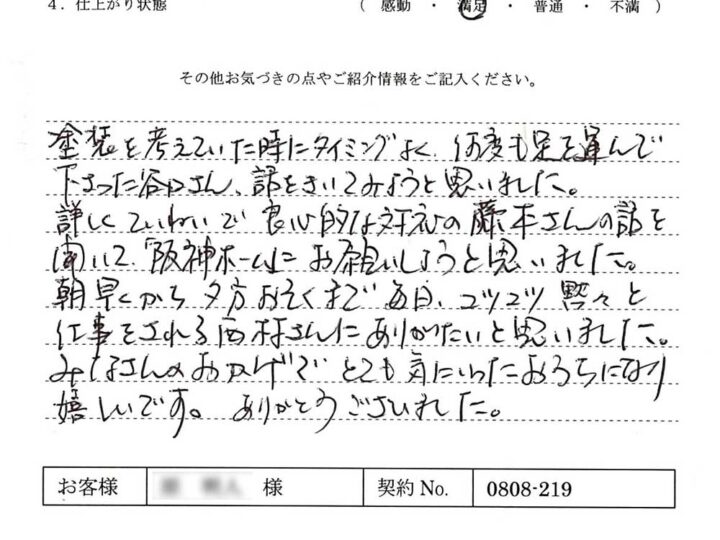 4．仕上がり状態 （ 感動 ・ 満足 ・ 普通 ・ 不満 ）
その他お気づきの点やご紹介情報をご記入ください。
塗装を考えていた時にタイミングよく、何度も足を運んで
下さった谷口さん、話をきいてみようと思いました。
詳しくていねいで良心的な対応の藤本さんの話を
聞いて、「阪神ホーム」にお願いしようと思いました。
朝早くから夕方おそくまで毎日、コツコツ黙々と
仕事をされる西村さんにありがたいと思いました。
みなさんのおかげでとても気にいったおうちになり
嬉しいです。ありがとうございました。
お客様 様 契約 No. 0808-219